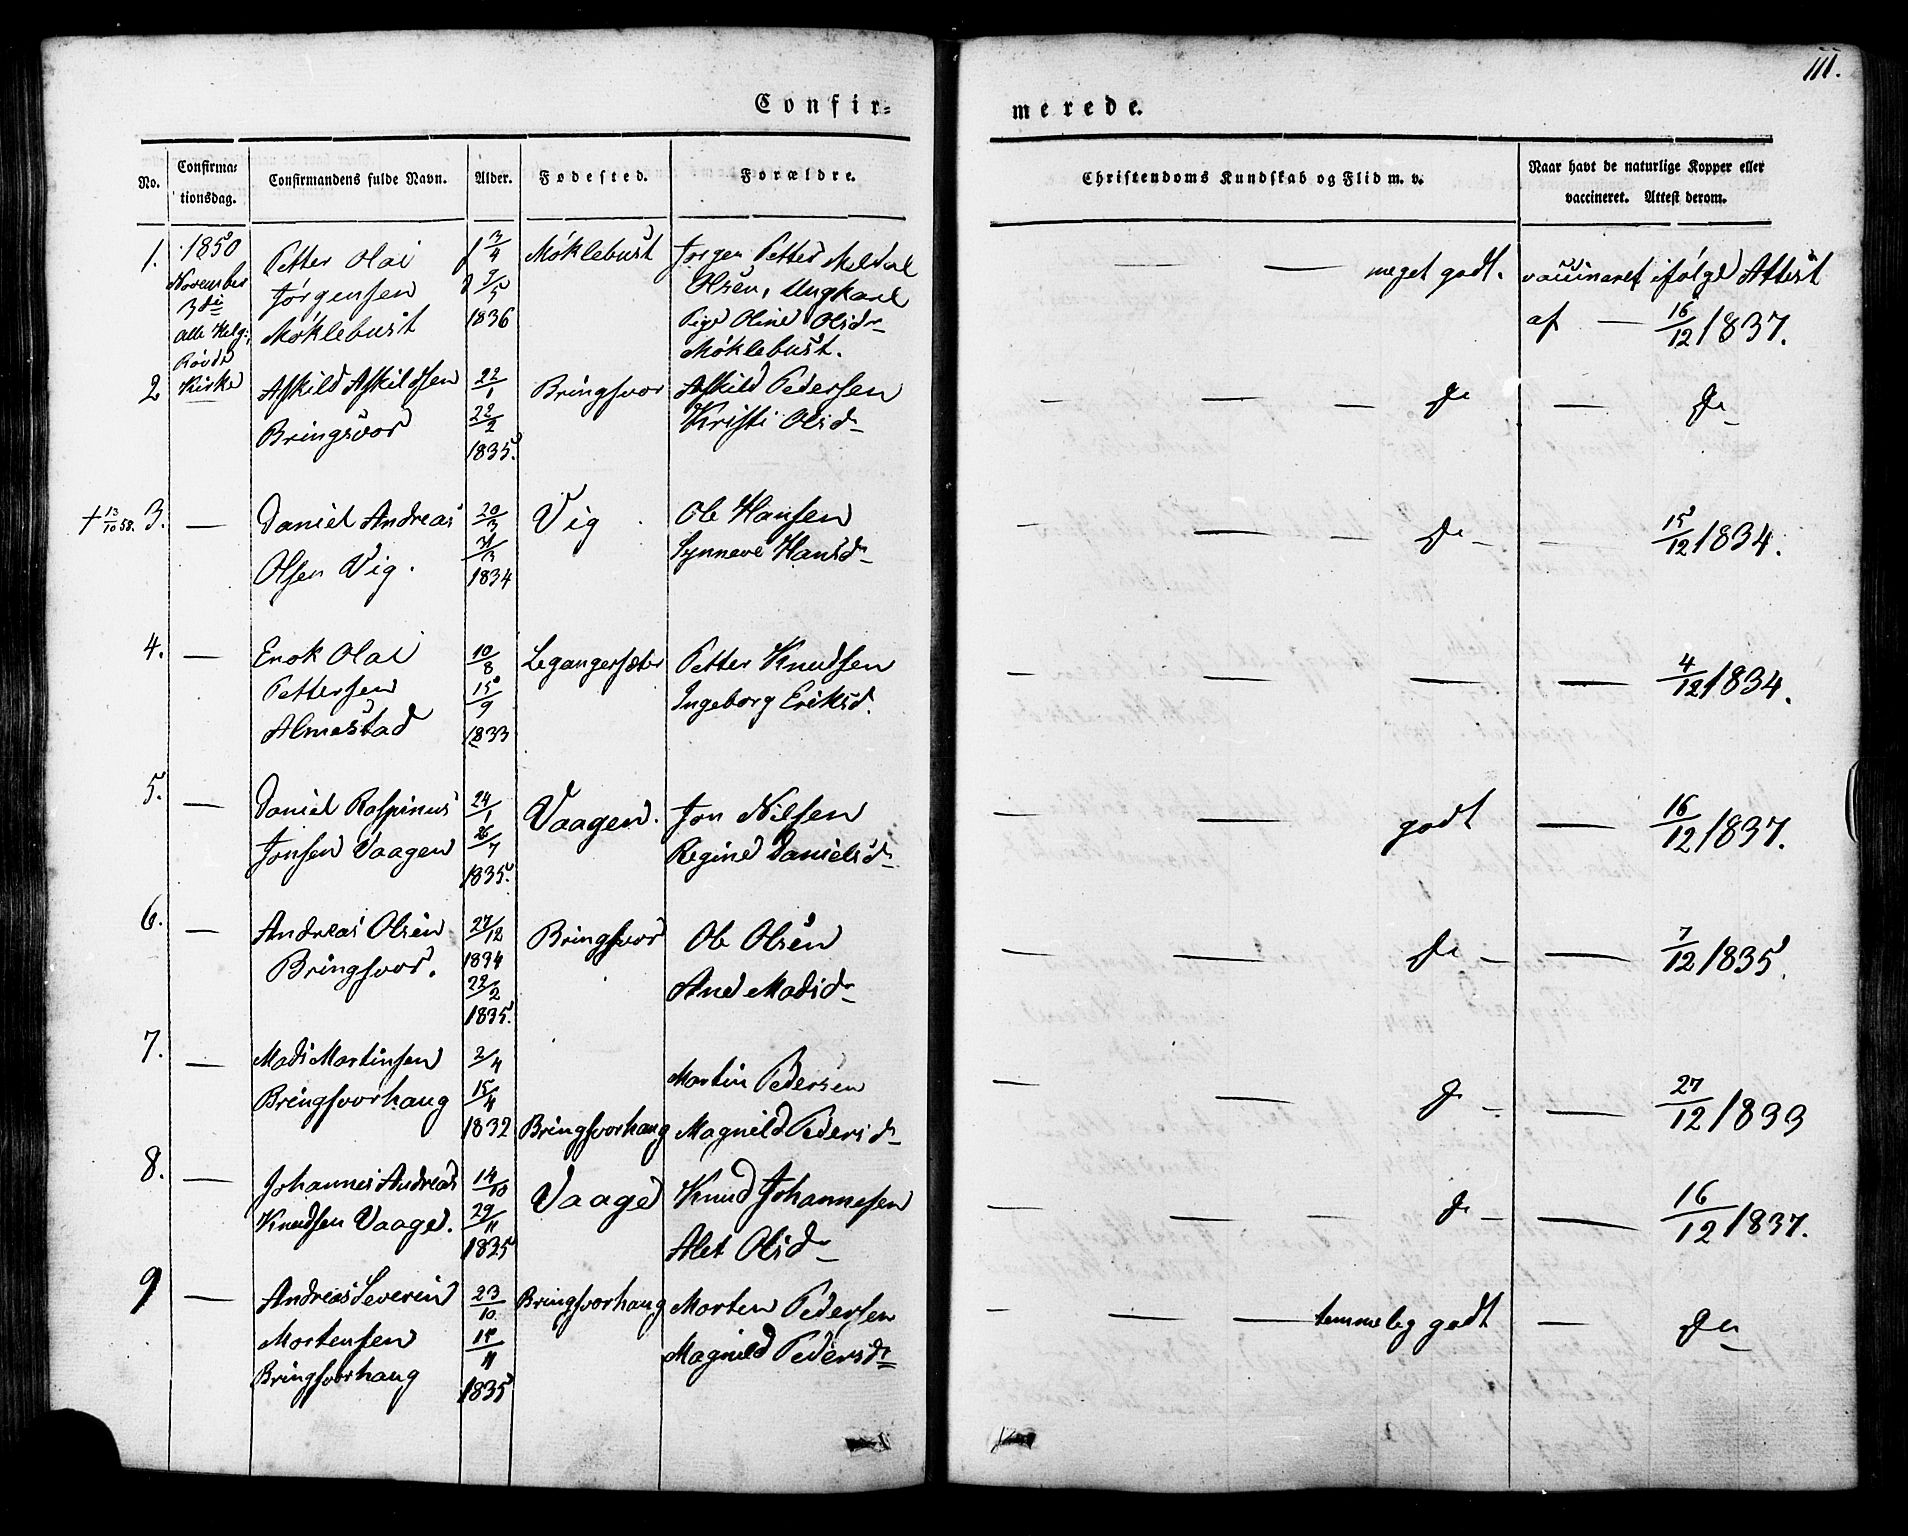 111.
Confir=
merede.
No.
Confirma-
tionsdag.
Confirmandens fulde Navn.
Alder.
Fødested.
Forældre.
Christendoms Kundskab og Flid m. v.
Naar havt de naturlige Kopper eller
vaccineret. Attest derom.
1.
1850
November
3die
Alle Helg:
Røvde
Kirke
Petter Olai
Jørgensen
Møklebust
f 3/4
d 9/5
1836
Møklebust
Jørgen Petter Meldal
Olsen, Ungkarl
Pige Oline Olsd.
Møklebust.
— — meget godt.
vaccineret ifølge Attest
af — 16/12 1837.
2
Askild Askildsen
Bringsvor
22/1
22/2
1835.
Bringsvor
Askild Pedersen
Kristi Olsd.
— — — do
— do
† 13/10 58.
3.
—
Daniel Andreas
Olsen Vig.
20/3
31/3
1834
Vig
Ole Hansen
Synneve Hansd.
— — — do —
— 15/12 1834.
4.
—
Enok Olai
Pettersen
Almestad
10/8
15/9
1833
Legangersæter
Petter Knudsen
Ingeborg Eriksd.
— — —
— 4/12 1834.
5.
—
Daniel Raspinus
Jonsen Vaagen
24/1
26/7
1835.
Vaagen.
Jon Nilsen
Regine Danielsd.
— — godt
— 16/12 1837.
6.
—
Andreas Olsen
Bringsvor.
27/12
1834
22/2
1835.
Bringsvor
Ole Olsen
Ane Madsd.
— — do —
— 7/12 1835.
7.
—
Mads Martinsen
Bringsvorhaug
2/4
15/4
1832
Bringsvorhaug
Martin Pedersen
Magnild Pedersd.
— — do —
— 27/12 1833
8.
—
Johannes Andreas
Knudsen Vaage.
14/10
29/11
1835
Vaage
Knud Johannesen
Alet Olsd.
— — — do —
— 16/12 1837.
9
—
Andreas Severin
Mortensen
Bringsvorhaug
23/10
15/11
1835
Bringsvorhaug
Morten Pedersen
Magnild Pedersd.
— — — temmelig godt
— do